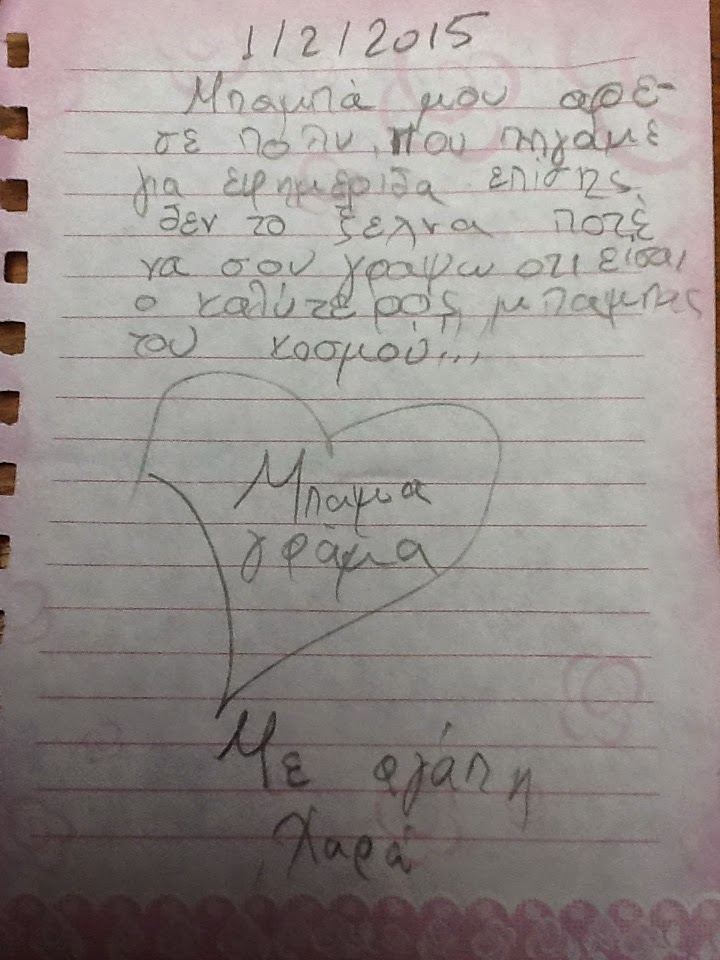 1/2/2015
Μπαμπά μου αρε-
σε πολυ, που πηγαμε
για εφημεριδα επισης
δεν το ξεχνα ποτέ
να σου γραψω οτι είσαι
ο καλύτερος μπαμπας
του κοσμού...
Μπαμπα
γράμμα
Με αγάπη
Χαρά